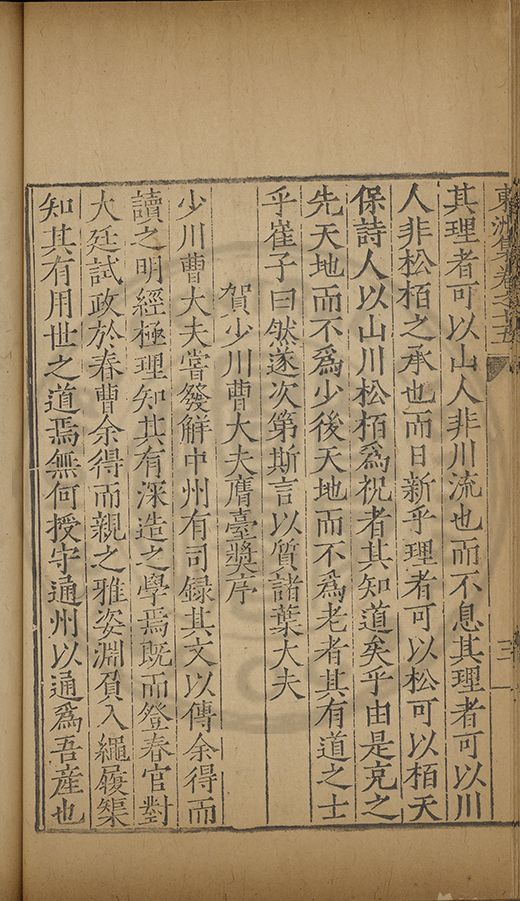 東洲集卷之十五
其理者可以山人非川流也而不息其理者可以川
人非松栢之承也而日新乎理者可以松可以栢天
保詩人以山川松栢爲祝者其知道矣乎由是充之
先天地而不爲少後天地而不爲老者其有道之士
乎崔子曰然遂次第斯言以質諸葉大夫
賀少川曹大夫膺臺奬序
少川曹大夫甞發解中州有司録其文以傳余得而
讀之明經極理知其有深造之學焉既而登春官對
大廷試政於春曹余得而親之雅姿淵負入繩履榘
知其有用世之道焉無何授守通州以通爲吾産也